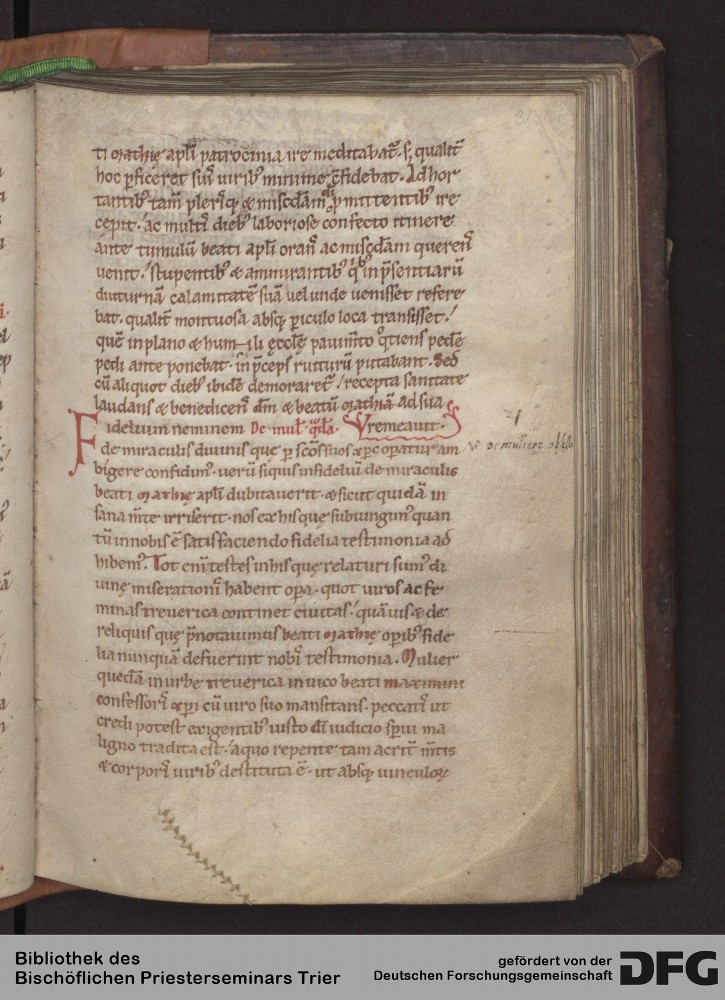 ti mathię apłi patrocinia ire meditabat̃. s; qualit̃
hoc ꝑficeret suis uirib; minime cfidebat. Ad hor
tantib; tam̃ plerisq; & misc̃dam ꝓmittentib; ire
cępit. ac multis dieb; laboriose confecto itinere
ante tumulũ beati apłi orañ ac misc̃dam quereñ
uenit. stupentib; & ammirantib; q̇b; in p̃sentiarũ
diuturnã calamitatẽ suã uel unde uenisset refere
bat. qualit̃ montuosa absq; ꝑiculo loca transisset.
quẽ in plano & humili ęcclę pauimto q̊tiens pedẽ
pedi ante ponebat. in p̃ceps ruiturũ putabant. Sed
cũ aliquot dieb; ibidẽ demoraret̃. recepta sanitate
laudans & benedicens dm̃ & beatũ mathiã ad sua
Fidelium neminem De mul̃ q̃dã. remeauit.
de miraculis diuinis que ꝑ scõs suos xp̃c operatur am
bigere confidim;. uerũ siquis infideliũ de miraculis
beati mathię apłi dubitauerit. & sicut quidã in
sana m̃te irriserit. nos ex his quę subiungim; quan
tũ in nobis ẽ satisfaciendo fidelia testimonia ad
hibem;. Tot enĩ testes in his que relaturi sum; di
uinę miserationis habent opa. quot uiros ac fe
minas treuerica continet ciuitas. quãuis & de
reliquis que p̃notauimus beati mathię opib; fide
lia nunquã defuerint nobis testimonia. Mulier
quedã in urbe treuerica in uico beati maximini
confessoris xp̃i cũ uiro suo mansitans. peccatis ut
credi potest exigentib; iusto dĩ iudicio sp̃ui ma
ligno tradita est. a quo repente tam acrit̃ m̃tis
& corporis uirib; destituta ẽ. ut absq; uinculoꝝ
de muliere
Bibliothek des
Bischöflichen Priesterseminars Trier
gefördert von der
Deutschen Forschungsgemeinschaft
DFG